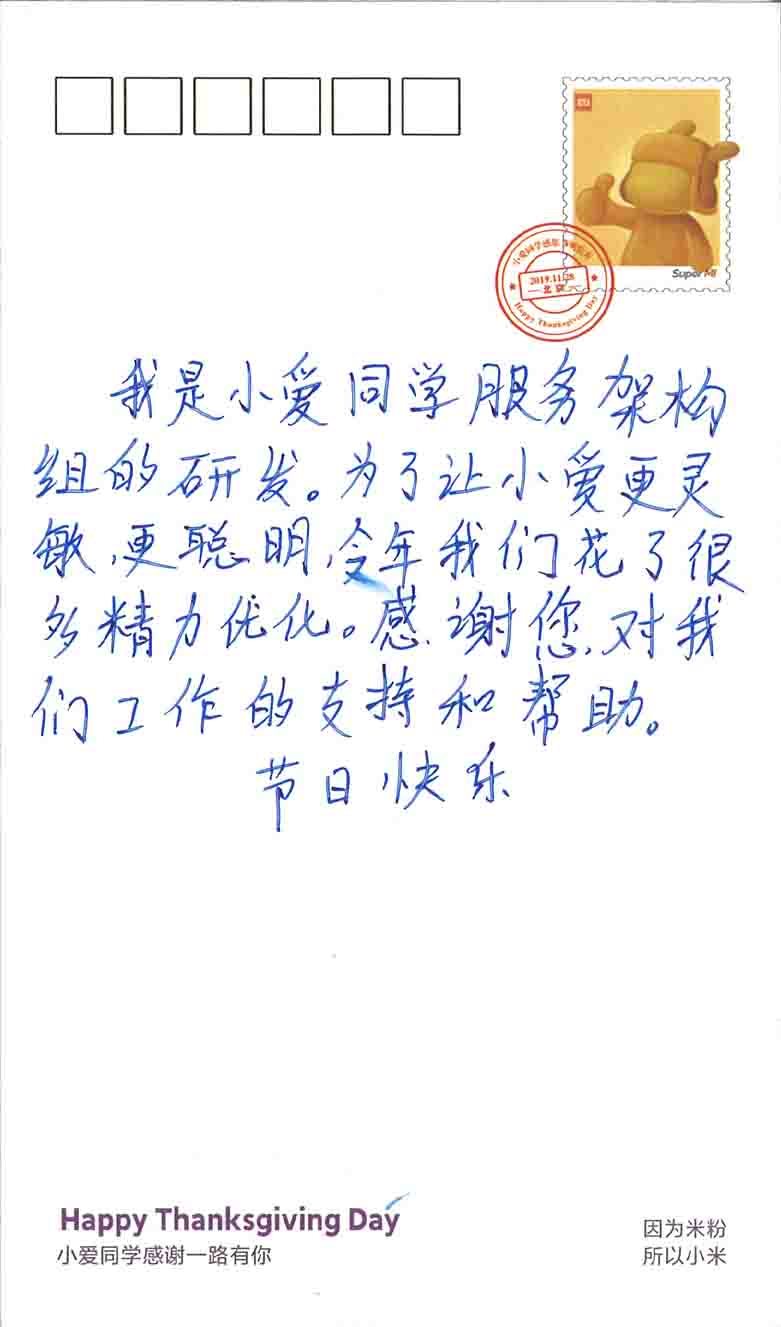 Super MI
小爱同学感恩
2019.11.28
北京
Happy Thanksgiving Day
我是小爱同学服务架构
组的研发。为了让小爱更灵
敏,更聪明,今年我们花了很
多精力优化。感谢您对我
们工作的支持和帮助。
节日快乐
Happy Thanksgiving Day
小爱同学感谢一路有你
因为米粉
所以小米